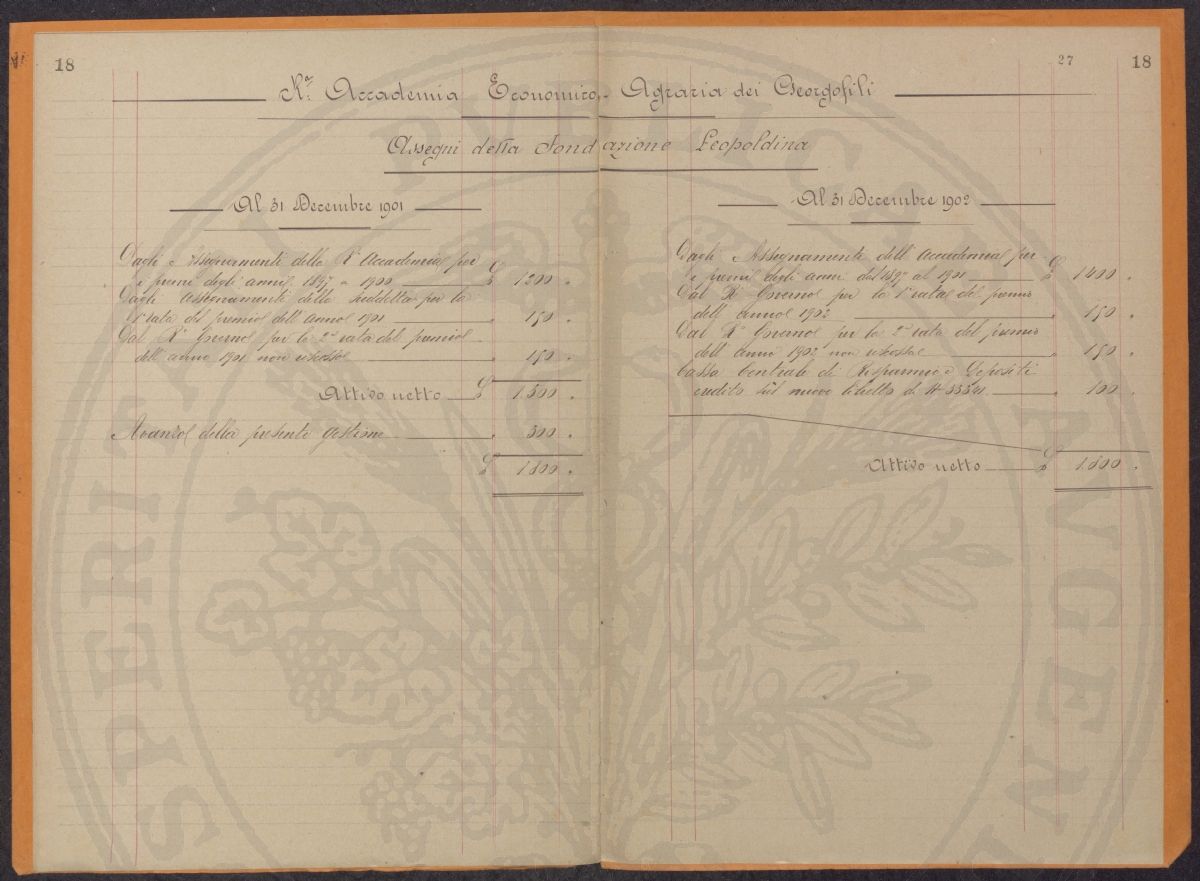 18
27
18
Rª Accademia Economico-Agraria dei Georgofili
Assegni della Fondazione Leopoldina
Al 31 Decembre 1901
Dagli Assegnamenti della Rª Accademia per
i premi degli anni 1897 a 1900 £ 1200 "
Dagli Assegnamenti della suddetta per la
1ª rata del premio dell'anno 1901 " 150 "
Dal Rº Governo per la 2ª rata del premio
dell'anno 1901 non riscossa " 150 "
Attivo netto £ 1.500 "
Avanzo della presente gestione " 300 "
£ 1.800 "
Al 31 Decembre 1902
Dagli Assegnamenti dell'Accademia per
i premi degli anni dal 1897 al 1901 £ 1400 "
Dal Rº Governo per la 1ª rata del premio
dell'anno 1902 " 150 "
Dal Rº Governo per la 2ª rata del premio
dell'anno 1902 non riscossa " 150 "
Cassa Centrale di Risparmi e Depositi
credito sul nuovo libretto di Nº 33341 " 100 "
Attivo netto £ 1.800 "
PROSPERITATI PUBLICAE AVGENDAE